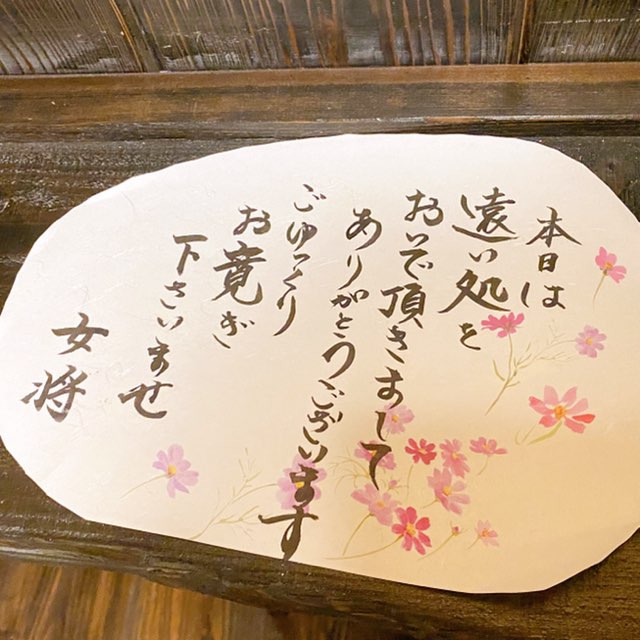 本日は
遠い処を
おいで頂きまして
ありがとうございます
ごゆっくり
お寛ぎ
下さいませ
女将